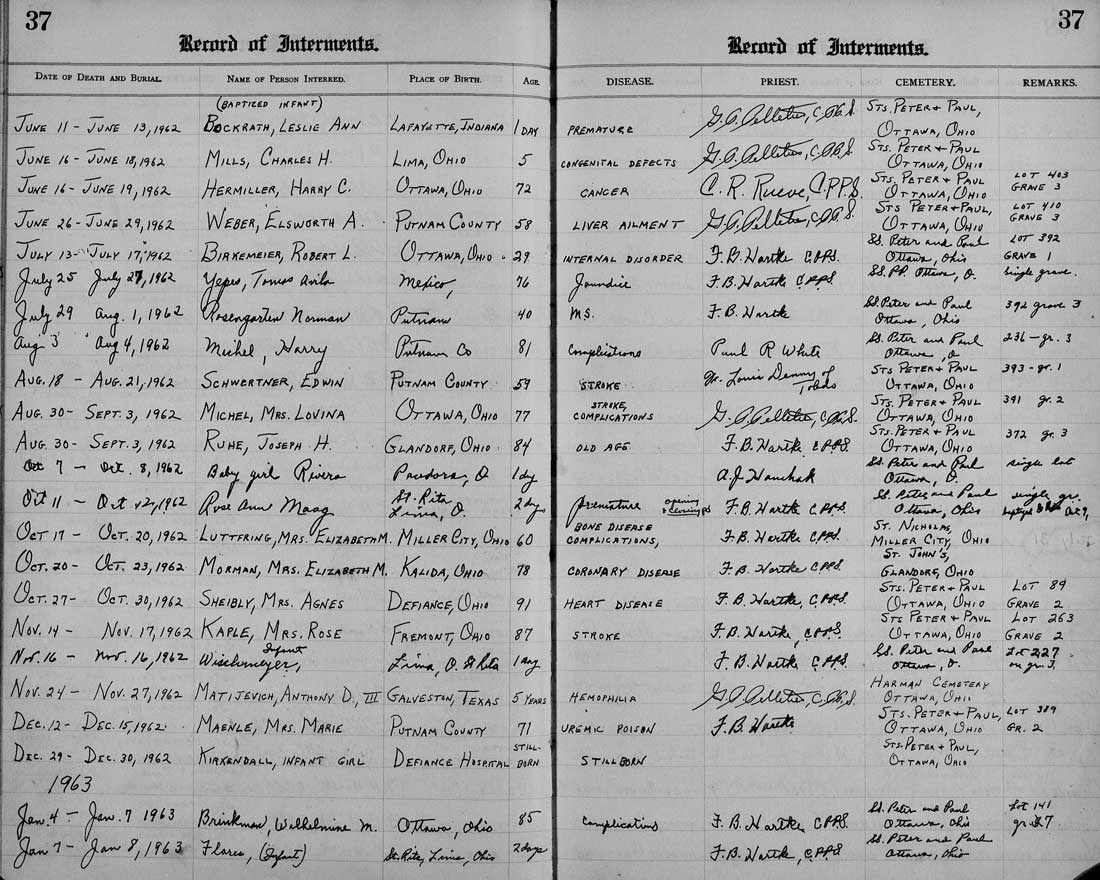 37 37
Record of Interments. Record of Interments.
DATE OF DEATH AND BURIAL. NAME OF PERSON INTERRED. PLACE OF BIRTH. AGE. DISEASE. PRIEST. CEMETERY. REMARKS.
(BAPTIZED INFANT) STS. PETER & PAUL,
JUNE 11 - JUNE 13, 1962 BOCKRATH, LESLIE ANN LAFAYETTE, INDIANA 1 DAY PREMATURE G. A. Pelletier, C.PP.S. OTTAWA, OHIO
STS. PETER & PAUL
JUNE 16 - JUNE 18, 1962 MILLS, CHARLES H. LIMA, OHIO 5 CONGENITAL DEFECTS G. A. Pelletier, C.PP.S. OTTAWA, OHIO
STS. PETER & PAUL LOT 403
JUNE 16 - JUNE 19, 1962 HERMILLER, HARRY C. OTTAWA, OHIO 72 CANCER C. R. Rueve, C.PP.S. OTTAWA, OHIO GRAVE 3
STS PETER & PAUL, LOT 410
JUNE 26 - JUNE 29, 1962 WEBER, ELSWORTH A. PUTNAM COUNTY 58 LIVER AILMENT G. A. Pelletier, C.PP.S. OTTAWA, OHIO GRAVE 3
SS. Peter and Paul LOT 392
JULY 13 - JULY 17, 1962 BIRKEMEIER, ROBERT L. OTTAWA, OHIO 29 INTERNAL DISORDER F. B. Hartke C.PP.S. Ottawa, Ohio GRAVE 1
July 25 July 27, 1962 Yepes, Tomas Avila Mexico, 76 Jaundice F. B. Hartke C.PP.S. SS. PP. Ottawa, O. Single grave.
SS. Peter and Paul
July 29 Aug. 1, 1962 Rosengarten Norman Putnam 40 M.S. F. B. Hartke Ottawa, Ohio 392 grave 3
SS. Peter and Paul
Aug 3 Aug 4, 1962 Michel, Harry Putnam Co 81 Complications Paul R White Ottawa, O 236 - gr. 3
STS PETER & PAUL
AUG. 18 - AUG. 21, 1962 SCHWERTNER, EDWIN PUTNAM COUNTY 59 STROKE Louis Denny of OTTAWA, OHIO 393 - gr. 1
STROKE, STS. PETER & PAUL
AUG. 30 - SEPT. 3, 1962 MICHEL, MRS. LOVINA OTTAWA, OHIO 77 COMPLICATIONS G. A. Pelletier, C.PP.S. OTTAWA, OHIO 391 gr. 2
STS. PETER & PAUL
AUG. 30 - SEPT. 3, 1962 RUHE, JOSEPH H. GLANDORF, OHIO 84 OLD AGE F. B. Hartke C.PP.S. OTTAWA, OHIO 372 gr. 3
SS. Peter and Paul
Oct 7 - Oct. 8, 1962 Baby girl Rivera Pandora, O 1 day A. J. Ottawa, O. single lot
St. Rita opening SS. Peter and Paul single gr.
Oct 11 - Oct 12, 1962 Rose Ann Maag Lima, O. 2 days premature & closing F. B. Hartke C.PP.S. Ottawa, Ohio
BONE DISEASE ST. NICHOLAS,
OCT 17 - OCT. 20, 1962 LUTTFRING, MRS. ELIZABETH M. MILLER CITY, OHIO 60 COMPLICATIONS, F. B. Hartke C.PP.S. MILLER CITY, OHIO
ST. JOHN'S,
OCT. 20 - OCT. 23, 1962 MORMAN, MRS. ELIZABETH M. KALIDA, OHIO 78 CORONARY DISEASE F. B. Hartke C.PP.S. GLANDORF, OHIO
STS. PETER & PAUL LOT 89
OCT. 27 - OCT. 30, 1962 SHEIBLY, MRS. AGNES DEFIANCE, OHIO 91 HEART DISEASE F. B. Hartke, C.PP.S. OTTAWA, OHIO GRAVE 2
STS PETER & PAUL LOT 263
NOV. 14 - NOV. 17, 1962 KAPLE, MRS. ROSE FREMONT, OHIO 87 STROKE F. B. Hartke, C.PP.S. OTTAWA, OHIO GRAVE 2
Infant SS. Peter and Paul Lot 227
Nov. 16 - Nov. 16, 1962 Wischmeyer, Lima, O. St Rita 1 day F. B. Hartke, C.PP.S. Ottawa, O. on gr. 3
HARMAN CEMETERY
NOV. 24 - NOV. 27, 1962 MATIJEVICH, ANTHONY D., III GALVESTON, TEXAS 5 YEARS HEMOPHILIA G. A. Pelletier, C.PP.S. OTTAWA, OHIO
STS. PETER & PAUL, LOT 389
DEC. 12 - DEC. 15, 1962 MAENLE, MRS. MARIE PUTNAM COUNTY 71 UREMIC POISON F. B. Hartke OTTAWA, OHIO GR. 2
STILL- STS. PETER & PAUL,
DEC. 29 - DEC. 30, 1962 KIRKENDALL, INFANT GIRL DEFIANCE HOSPITAL BORN STILLBORN OTTAWA, OHIO
1963
SS. Peter and Paul Lot 141
Jan. 4 - Jan. 7 1963 Brinkman, Wilhelmine M. Ottawa, Ohio 85 Complications F. B. Hartke, C.PP.S. Ottawa, Ohio gr. 7
SS. Peter and Paul
Jan 7 - Jan 8, 1963 Flores, (Infant) St. Rita, Lima, Ohio 2 days F. B. Hartke, C.PP.S Ottawa, Ohio